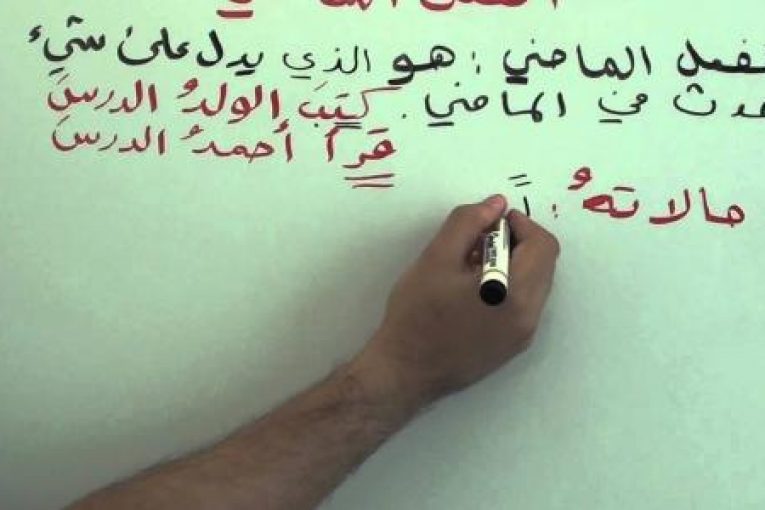 الفعل الماضي
لفعل الماضي : هو الذي يدل على شيء
حدث في الماضي . كتبَ الولدُ الدرسَ
قرأ أحمدُ الدرسَ
حالاتهُ :